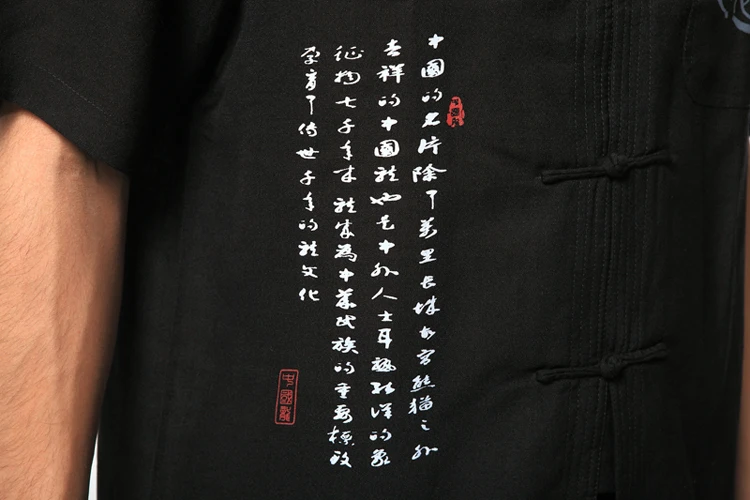 中國的名片除了萬里長城故宮熊猫之外
中國龍
吉祥的中國龍也是中外人士耳熟能詳的象
征物七千年來龍為中華民族的重要標
孕育了傳世千年的龍文化
中國龍